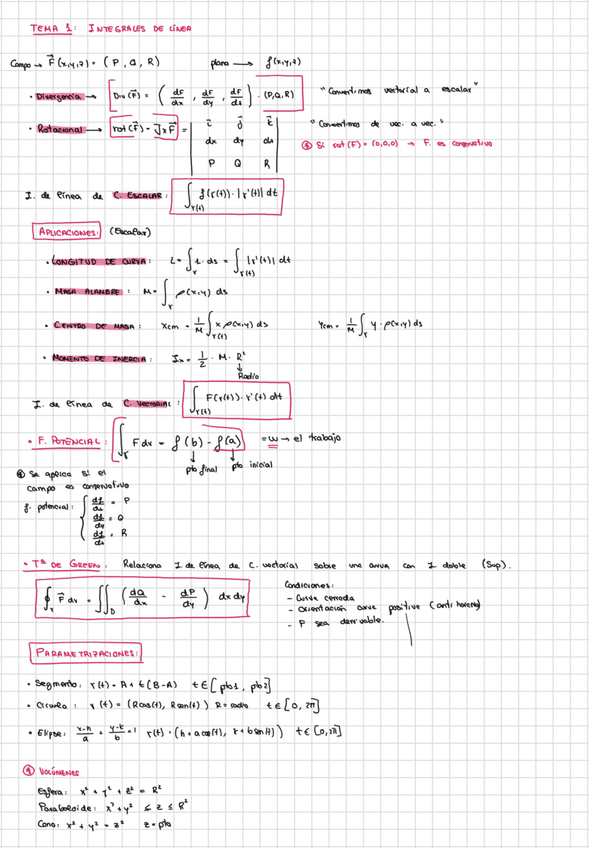 TEMA 1: INTEGRALES DE LÍNEA
Campo → F(x,y,z) = (P, Q, R) plano → f(x,y,z)
· Divergencia → Div(F) = (dF/dx, dF/dy, dF/dz) · (P,Q,R) "Convertimos vectorial a escalar"
· Rotacional → rot(F) = ∇xF = | i j k | "Convertimos de vec. a vec."
dx dy dz ⊛ Si rot(F) = (0,0,0) → F. es conservativo
P Q R
I. de línea de C. ESCALAR: ∫r(t) f(r(t))·|r'(t)| dt
APLICACIONES: (Escalar)
· LONGITUD DE CURVA: L = ∫r 1·ds = ∫r(t) |r'(t)| dt
· MASA ALAMBRE: M = ∫r ρ(x,y) ds
· CENTRO DE MASA: Xcm = 1/M ∫r(t) x ρ(x,y) ds Ycm = 1/M ∫r y·ρ(x,y) ds
· MOMENTO DE INERCIA: Ix = 1/2 · M · R²
↓
Radio
I. de línea de C. VECTORIAL: ∫r(t) F(r(t))·r'(t) dt
· F. POTENCIAL: ∫r F dr = f(b) - f(a) = W → el trabajo
↓ pto final ↓ pto inicial
⊛ Se aplica si el
campo es conservativo
f. potencial: { df/dx = P
df/dy = Q
df/dz = R
· Tª DE GREEN: Relaciona I. de línea de C. vectorial sobre una curva con I. doble (Sup).
∮r F dr = ∬D (dQ/dx - dP/dy) dx dy
Condiciones:
- Curva cerrada
- Orientación curva positiva (anti horario)
- F sea derivable.
PARAMETRIZACIONES:
· Segmento: r(t) = A + t(B-A) t∈[pto1, pto2]
· Círculo: r(t) = (Rcos(t), Rsen(t)) R = radio t∈[0, 2π]
· Elipse: x-h/a + y-k/b = 1 r(t) = (h + a cos(t), k + b sen(t)) t∈[0, 2π]
⊛ VOLÚMENES
Esfera: x² + y² + z² = R²
Paraboloide: x² + y² ≤ z ≤ R²
Cono: x² + y² = z² z = pto